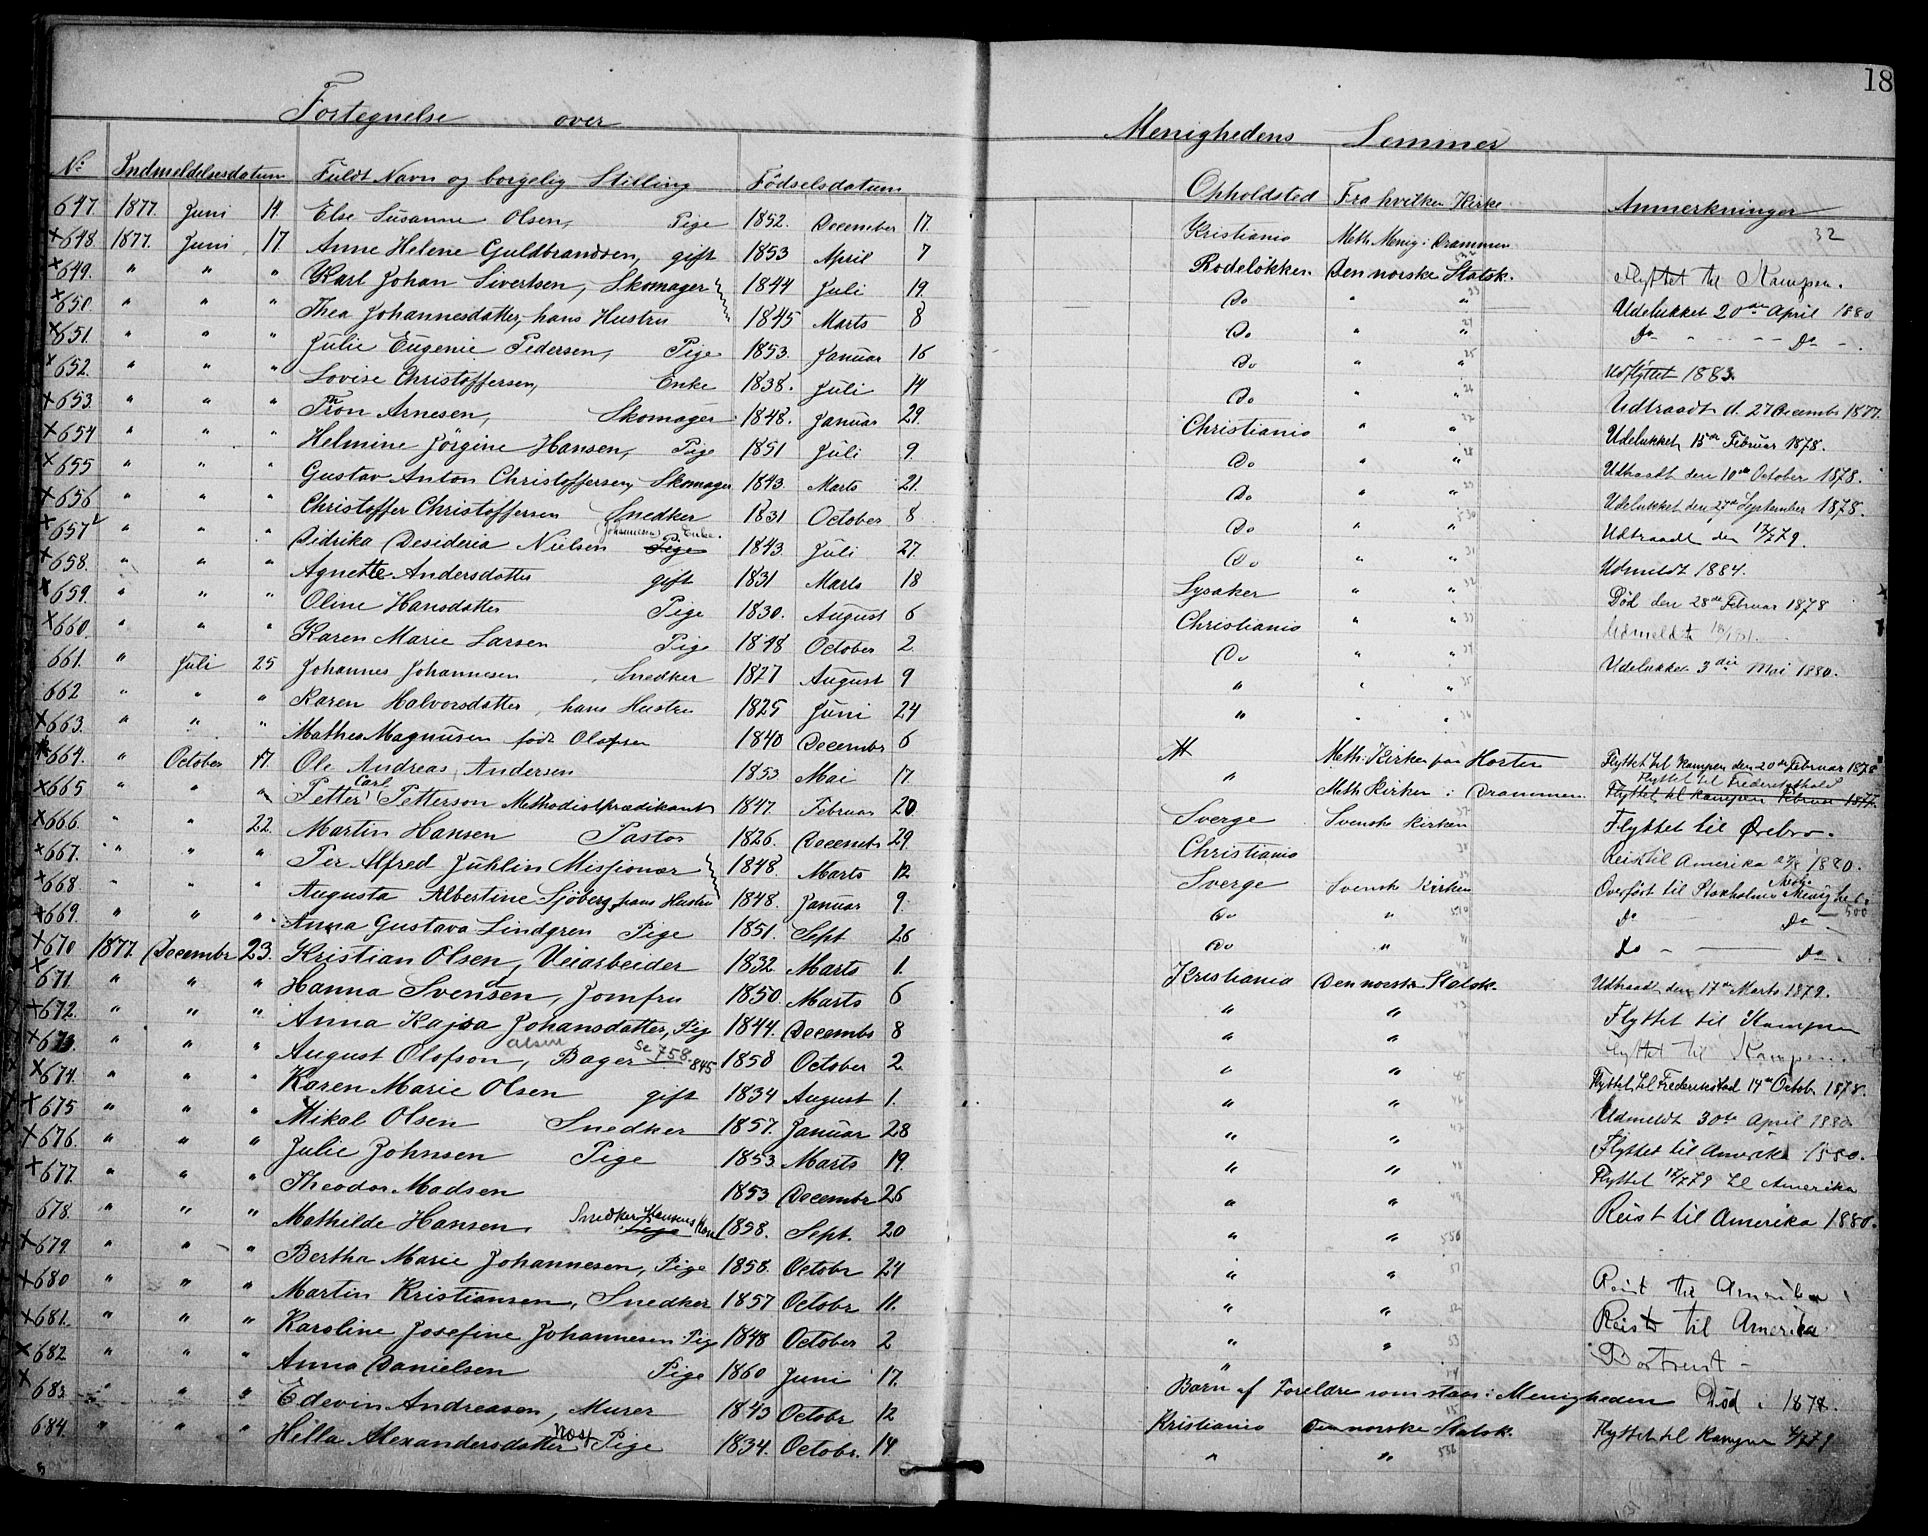 18
Fortegnelse over Menighedens Lemmer
No Indmeldelsesdatum Fuldt Navn og borgelig Stilling Fødselsdatum Opholdsted Fra hvilken Kirke Anmerkninger
32
647. 1877. Juni 14. Else Susanne Olsen, Pige 1852. December 17. Kristiania Meth. Menig i Drammen
x 648. 1877. Juni 17. Anne Helene Guldbrandsen, gift 1853 April 7 Rodeløkken. Den norske Statsk. Flyttet til Kampen.
x 649. " " " Karl Johan Sivertsen, Skomager 1844 Juli 19. Do " " Udelukket 20de April 1880
x 650. " " " Thea Johannesdatter, hans Hustru 1845 Marts 8 Do " " Do - - - - Do -
x 651. " " " Julie Eugenie Pedersen, Pige 1853. Januar 16 Do " " Udflyttet 1883.
x 652. " " " Lovise Christoffersen, Enke 1838. Juli 14 Do " " Udtraadt d. 27 Decembr 1877.
x 653. " " " Thron Arnesen, Skomager 1848. Januar 29. Christiania " " Udelukket 15de Februar 1878.
x 654 " " " Helmine Jörgine Hansen, Pige 1851 Juli 9. Do " " Udtraadt den 10de October 1878.
x 655 " " " Gustav Anton Christoffersen, Skomager 1843. Marts 21. Do " " Udelukket den 27de September 1878.
x 656 " " " Christoffer Christoffersen Snedker 1831 October 8 Do " " Udtraadt den 17/7 79.
x 657 " " " Didrika Desideria Nielsen (Johannesen) Pige Enke. 1843. Juli 27. Do " " Udmeldt 1884.
x 658. " " " Agnette Andersdatter gift 1831 Marts 18 Lysaker " " Død den 28de Februar 1878
x 659. " " " Oline Hansdatter Pige 1830. August 6 Christiania " " Udmeldt
x 660. " " " Karen Marie Larsen Pige 1848 October 2. Do " " Udelukket 3die Mai 1880.
661. " Juli 25 Johannes Johannesen, Snedker 1827 August 9 " " "
662 " " " Karen Halvorsdatter, hans Hustru 1825 Juni 24 " " "
x 663. " " " Mathea Magnusen født Olafsen 1840 Decembr 6 Meth. Kirken paa Horten Flyttet til Kampen den 20de Februar 1878
x 664. " October 17. Ole Andreas Andersen 1853 Mai 17 " Meth Kirken i Drammen. Flyttet til Frederikshald Flyttet til Kampen Februar 1877.
x 665 " " " Petter Carl Petterson Methodistprædikant 1847. Februar 20. Sverge Svenske Kirken Flyttet til Ørebro.
x 666. " " 22. Martin Hansen Pastor 1826. Decembr 29. Christiania Reist til Amerika 1880.
x 667. " " " Per Alfred Juhlin Missionær 1848. Marts 12 Sverge Svenske Kirken Overført til Stockholms Meth. Menighed
x 668 " " " Augusta Albertine Sjöberg, hans Hustru 1848. Januar 9. Do " Do - Do -
x 669. " " " Anna Gustava Lindgren Pige 1851. Sept 26 Do " Do - Do -
x 670 1877. Decembr 23. Kristian Olsen, Veiarbeider 1832 Marts 1. Kristiania Den norske Statsk. Udtraadt den 17de Marts 1879.
x 671. " " " Hanna Svensen, Jomfru 1850. Marts 6 " " Flyttet til Kampen
x 672. " " " Anna Kajsa Johansdatter, Pig 1844. Decembr 8 " " Flyttet til Kampen.
x 673. " " " August Olofson, Olsen Bager Se 758. 845 1850 October 2 " " Flyttet til Frederikstad 14de Octobr 1878.
x 674. " " " Karen Marie Olsen gift 1834 August 1. " " Udmeldt 30te April 1880
x 675 " " " Mikal Olsen Snedker 1857. Januar 28 " " Flyttet til Amerika 1880.
x 676. " " " Julie Johnsen Pige 1853. Marts 19. " " Flyttet 17/7 79 til Amerika
x 677. " " " Theodor Madsen 1853 Decembr 26 " " Reist til Amerika 1880.
678. " " " Mathilde Hansen, Snedker Hansens Kone Pige 1858. Sept. 20 " "
x 679. " " " Bertha Marie Johannesen, Pige 1858. Octobr 24 " " Reist til Amerika
x 680 " " " Martin Kristiansen, Snedker 1857 Octobr 11. " " Reist til Amerika
x 681. " " " Karoline Josefine Johannesen Pig 1848 October 2 " " Bortreist -
x 682 " " " Anna Danielsen Pige 1860 Juni 17. Barn af Foreldre som staar i Menigheden Død i 1878.
x 683 " " " Edevin Andreasen, Murer 1843 Octobr 12 Kristiania Den norske Statsk. Flyttet til Kampen 79
684. " " " Hella Alexandersdatter Pige 1834. Octobr. 14 " "